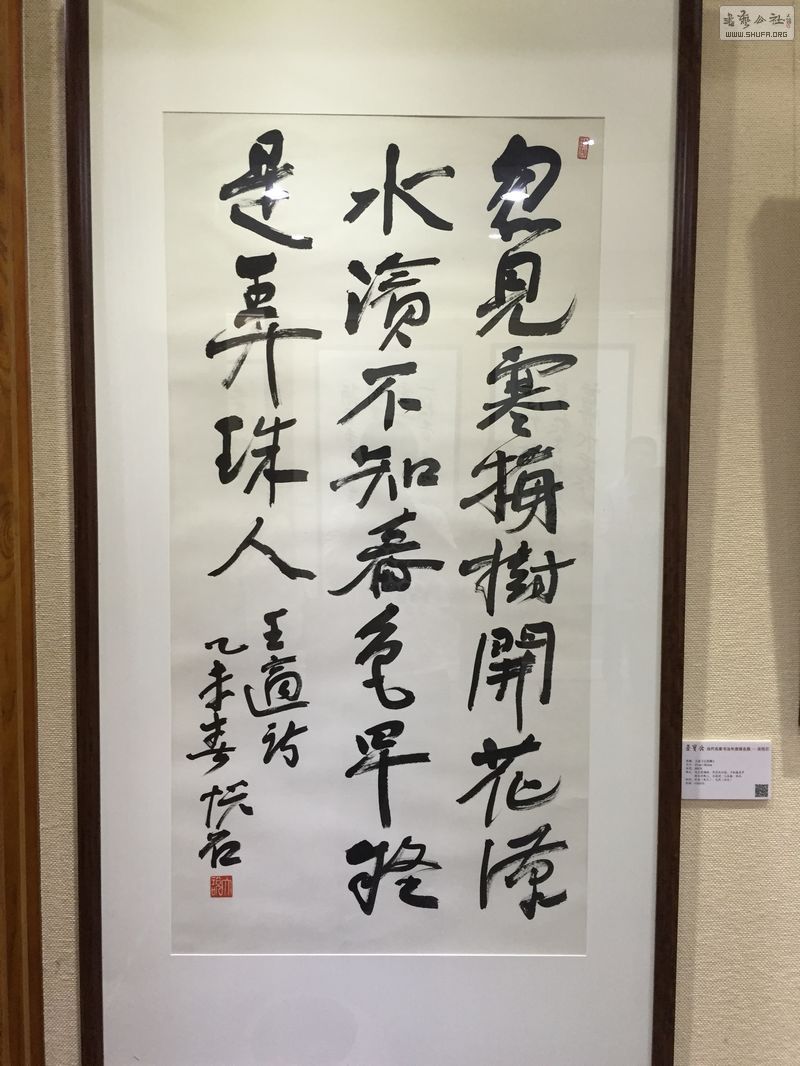 忽見寒梅樹開花漢
水濱不知春色早疑
是弄珠人
王適詩
乙未春 悦石
書藝公社
WWW.SHUFA.ORG